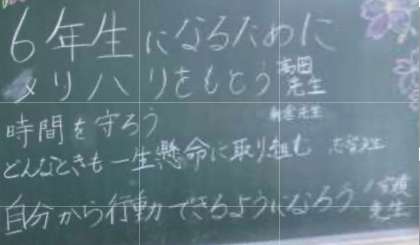 6年生になるために
メリハリをもとう 高田先生
時間を守ろう 先生
どんなときも一生懸命に取り組む 志賀先生
自分から行動できるようになろう 先生